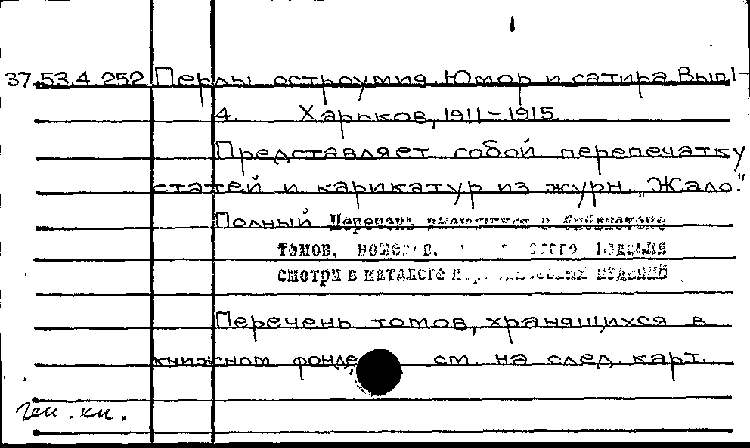 37.53.4.252 Перлы остроумия. Юмор и сатира. Вып. 1-
4. Харьков, 1911-1915
Представляет собой перепечатку
статей и карикатур из журн. „Жало".
Полный Перечень имеющихся в библиотеке
томов, номеров, этого издания
смотри в каталоге изданий
Перечень томов, хранящихся в
книжном фонде см. на след. карт.
ген. кн.